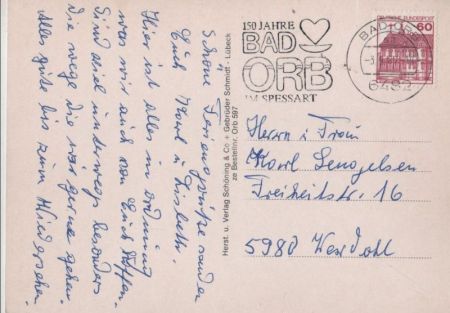 Schöne Feriengrüße senden
Euch Karl und Lisbeth.
Hier ist alles in Ordnung
was wir auch von Euch hoffen.
Sind viel unterwegs besonders
Die Wege die wir gerne gehen.
Alles gute bis zum Wiedersehen.
Herst. u. Verlag Schöning & Co + Gebrüder Schmidt - Lübeck
Bestellnr. Orb 597
150 JAHRE
BAD
ORB
IM SPESSART
DEUTSCHE BUNDESPOST
60
BAD ORB
6482
Herrn u. Frau
Karl Lengelsen
Freiheitstr. 16
5980 Werdohl